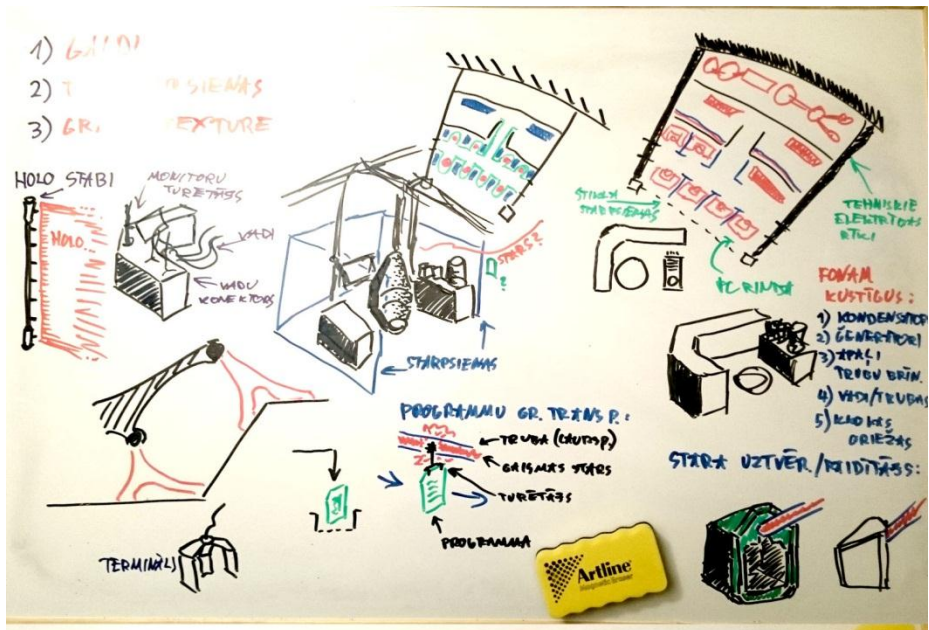 1) GALDI
2) T SIENAS
3) GR. TEXTURE
HOLO STABI
HOLO
MONITORU
TURĒTĀJS
VADI
VADU
KONEKTORS
STARS?
?
STARPSIENAS
STIKLA
STARPSIENAS
TEHNISKIE
ELEKTRĪBAS
RĪKI
PC RINDA
FONAM
KUSTĪGUS:
1) KONDENSATORI
2) ĢENERATORI
3) APAĻI
TRUBU
4) VADI/TRUBAS
5) KAUKAS
GRIEŽAS
PROGRAMMU GR. TRANSP.:
TRUBA (CAURSP.)
GAISMAS STARS
TURĒTĀJS
PROGRAMMA
TERMINĀLS
STARA UZTVĒR./RAIDĪTĀJS:
Artline
Magnetic Eraser